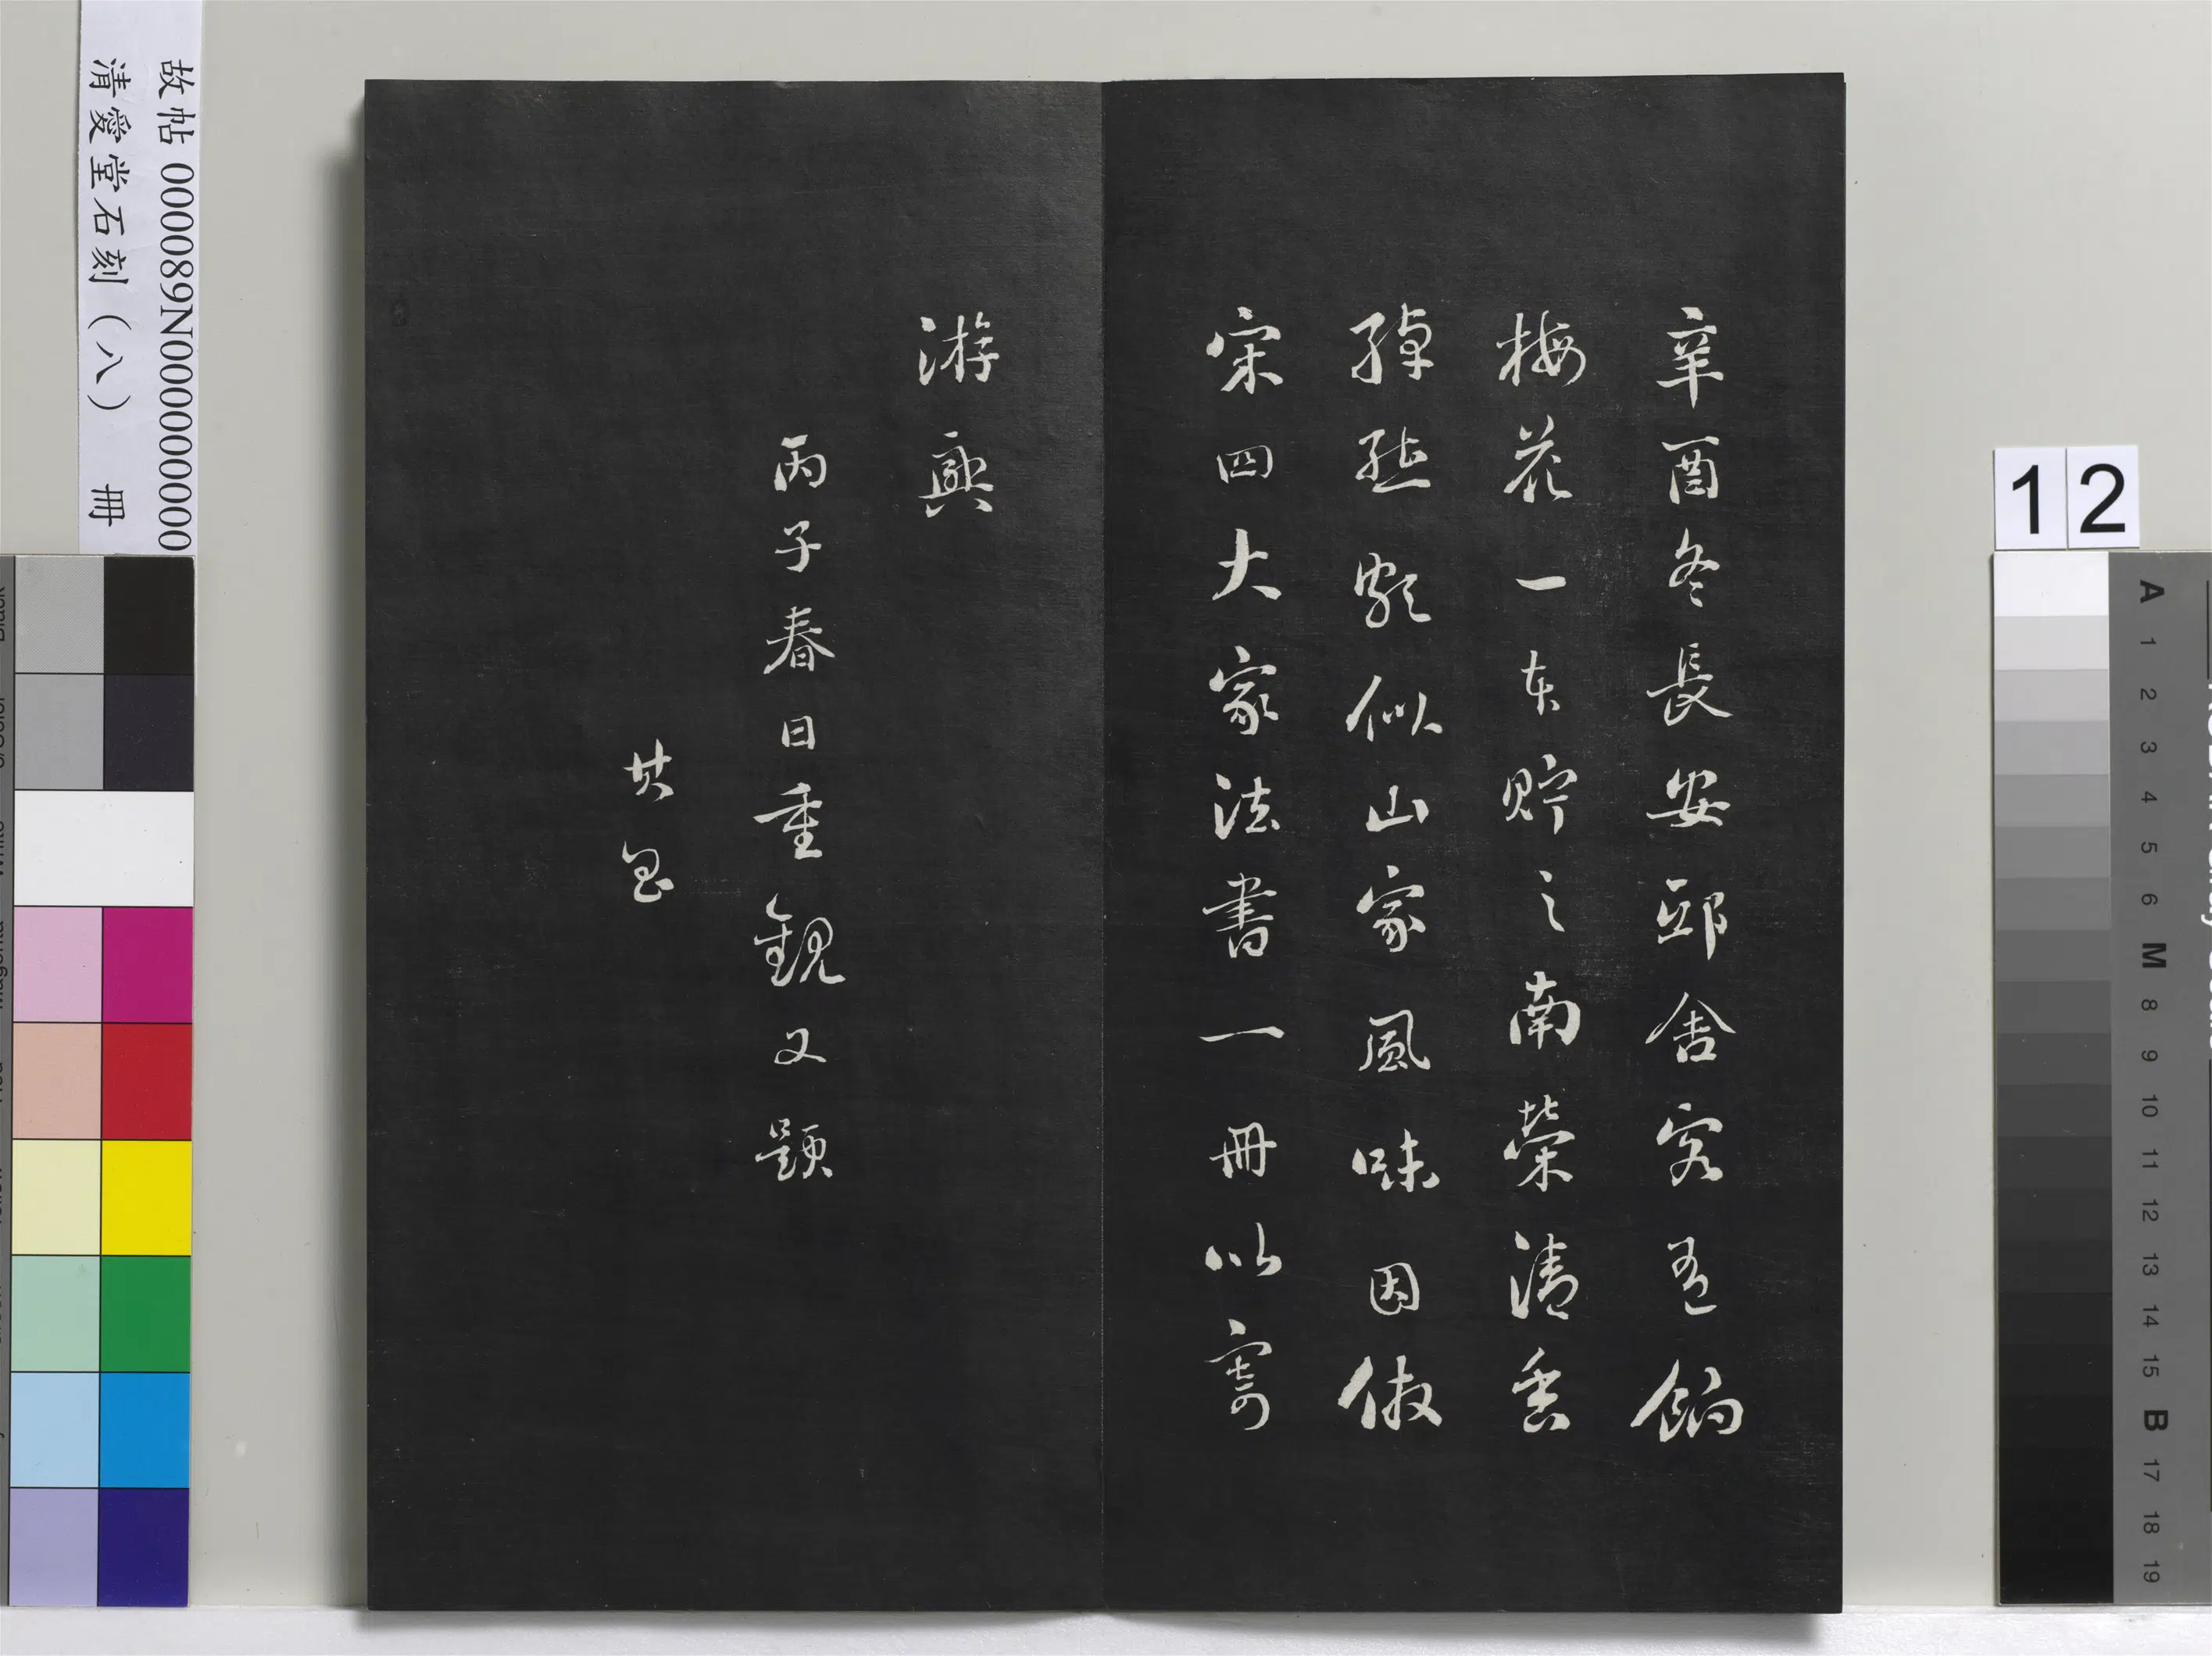 辛酉冬長安邸舍客有餉
梅花一本貯之南榮清香
綽然頗似山家風味因倣
宋四大家法書一冊以寄
游興
丙子春日重觀又題
其昌
故帖 000089N000000000
清愛堂石刻（八） 冊
12
A 1 2 3 4 5 6 M 8 9 10 11 12 13 14 15 B 17 18 19